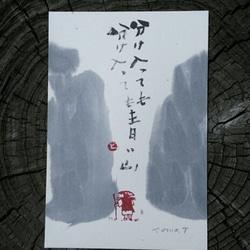 分け入っても
分け入っても青い山